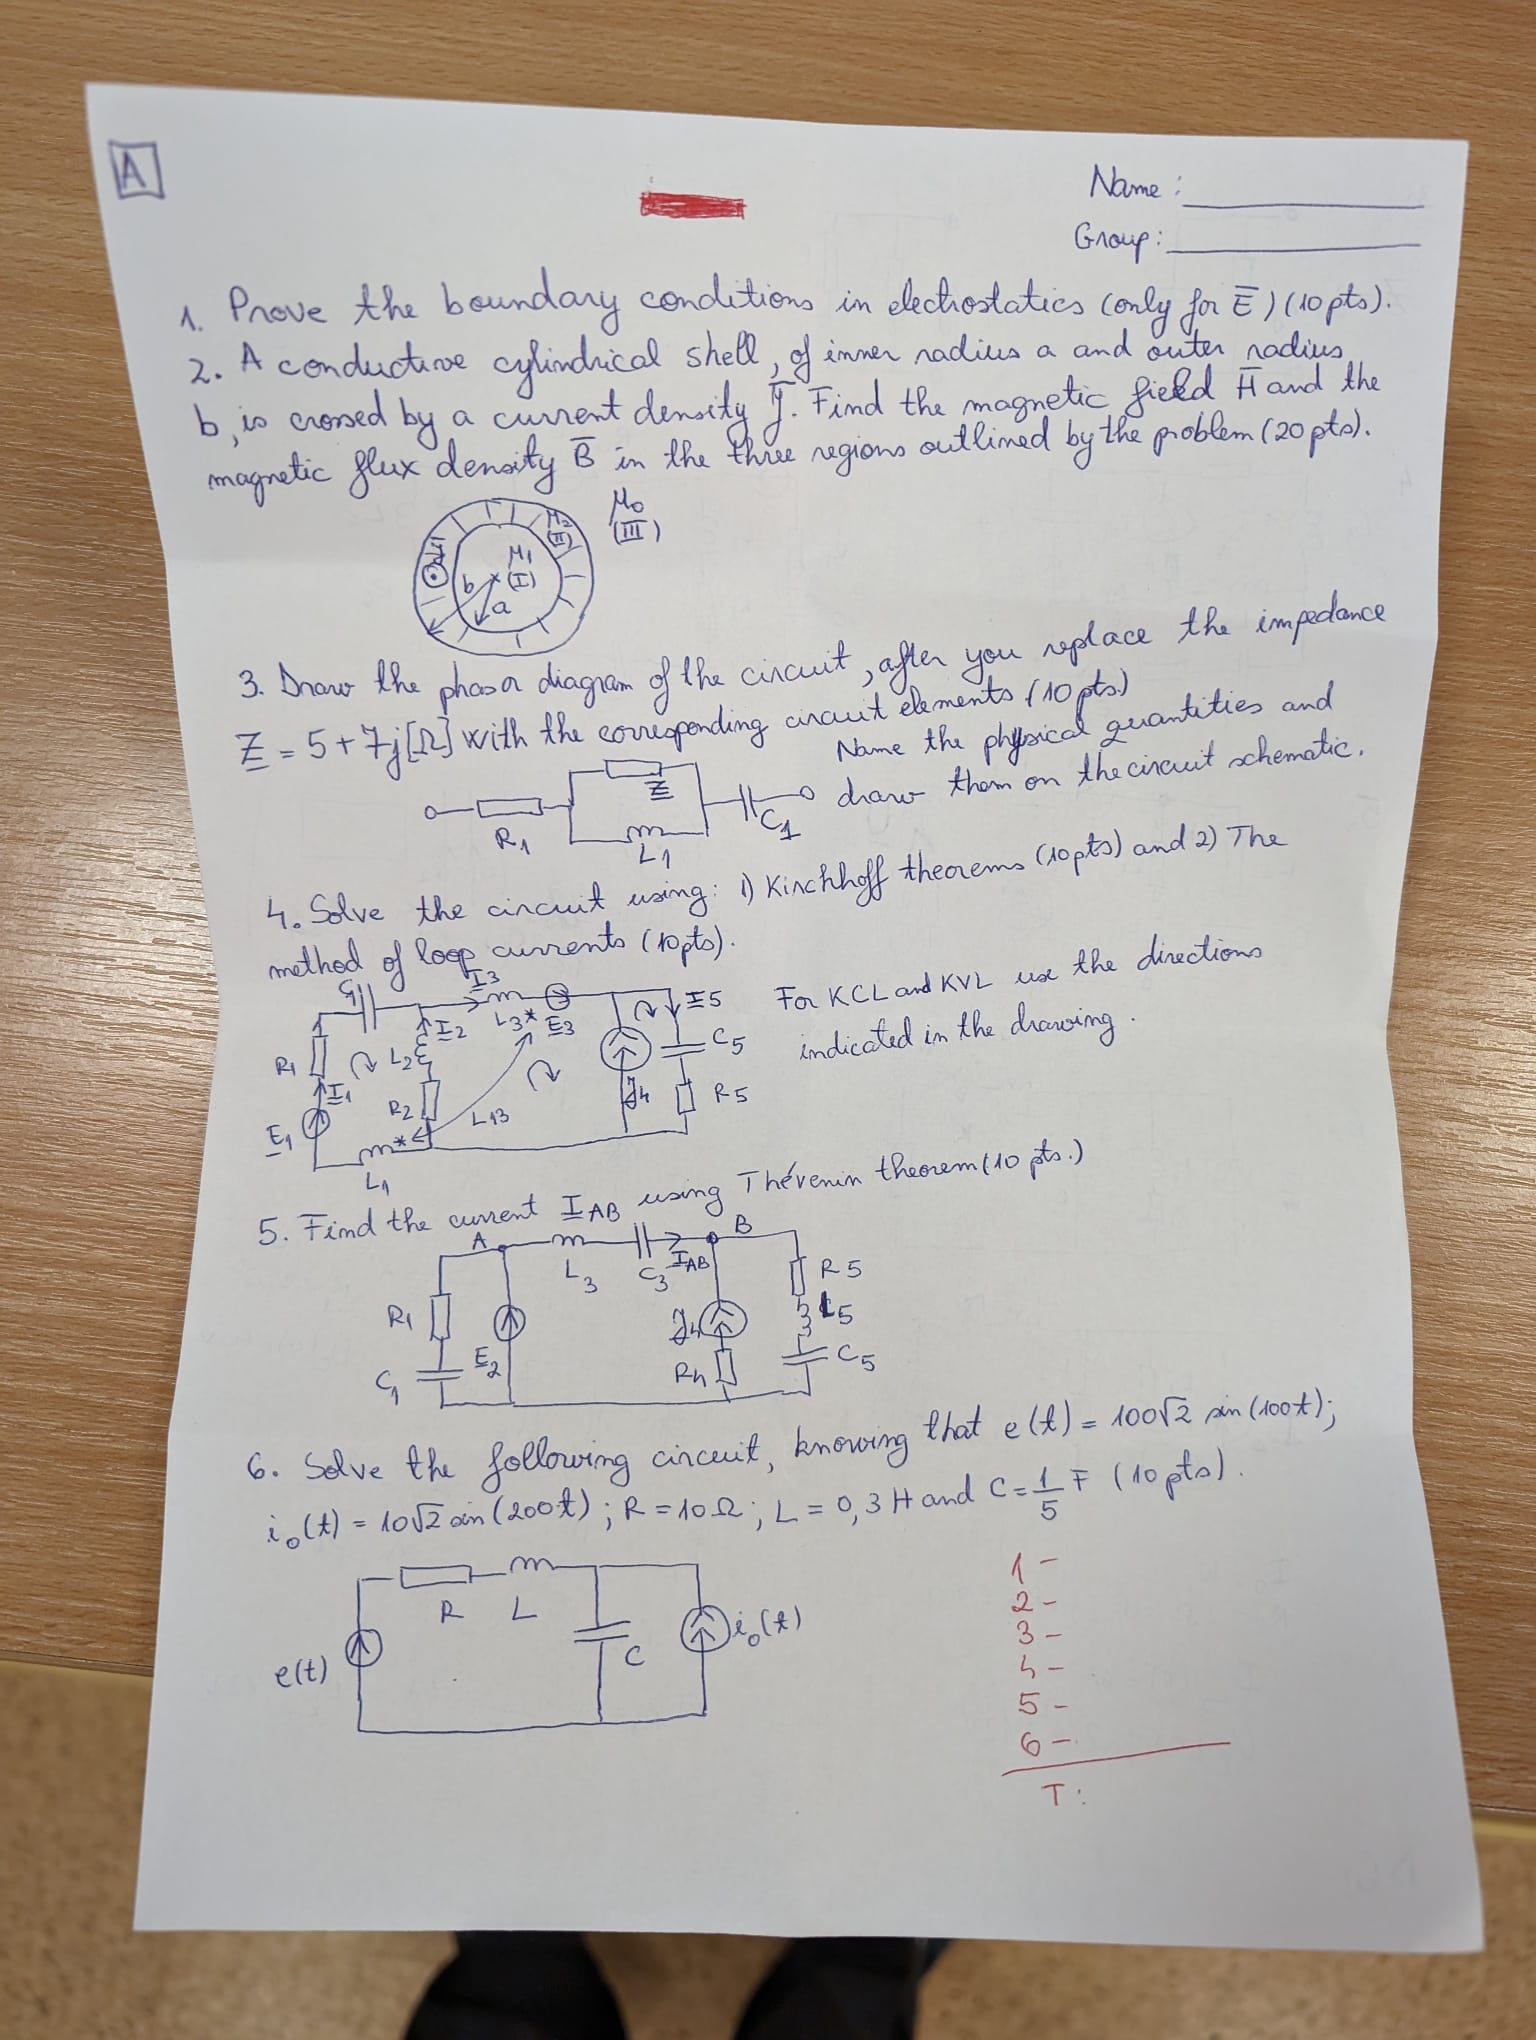 A
Name: 
Group: 
1. Prove the boundary conditions in electrostatics (only for E̅) (10 pts).
2. A conductive cylindrical shell, of inner radius a and outer radius
b, is crossed by a current density J̅. Find the magnetic field H̅ and the
magnetic flux density B̅ in the three regions outlined by the problem (20 pts).
μ0
(III)
μ2
(II)
J̅
μ1
(I)
b
a
3. Draw the phasor diagram of the circuit, after you replace the impedance
Z = 5 + 7j [Ω] with the corresponding circuit elements (10 pts.)
Name the physical quantities and
draw them on the circuit schematic.
Z
R1
L1
C1
4. Solve the circuit using: 1) Kirchhoff theorems (10 pts) and 2) The
method of loop currents (10 pts).
For KCL and KVL use the directions
indicated in the drawing.
C1
I3
L3*
E3
I5
R1
L2
I2
C5
I1
R2
L13
J4
R5
E1
*
L1
5. Find the current IAB using Thévenin theorem (10 pts.)
A
B
L3
C3
IAB
R5
R1
J4
L5
C1
E2
R4
C5
6. Solve the following circuit, knowing that e(t) = 100√2 sin(100t);
i0(t) = 10√2 sin(200t); R = 10 Ω; L = 0,3 H and C = 1/5 F (10 pts).
R
L
C
i0(t)
e(t)
1 -
2 -
3 -
4 -
5 -
6 -
T: